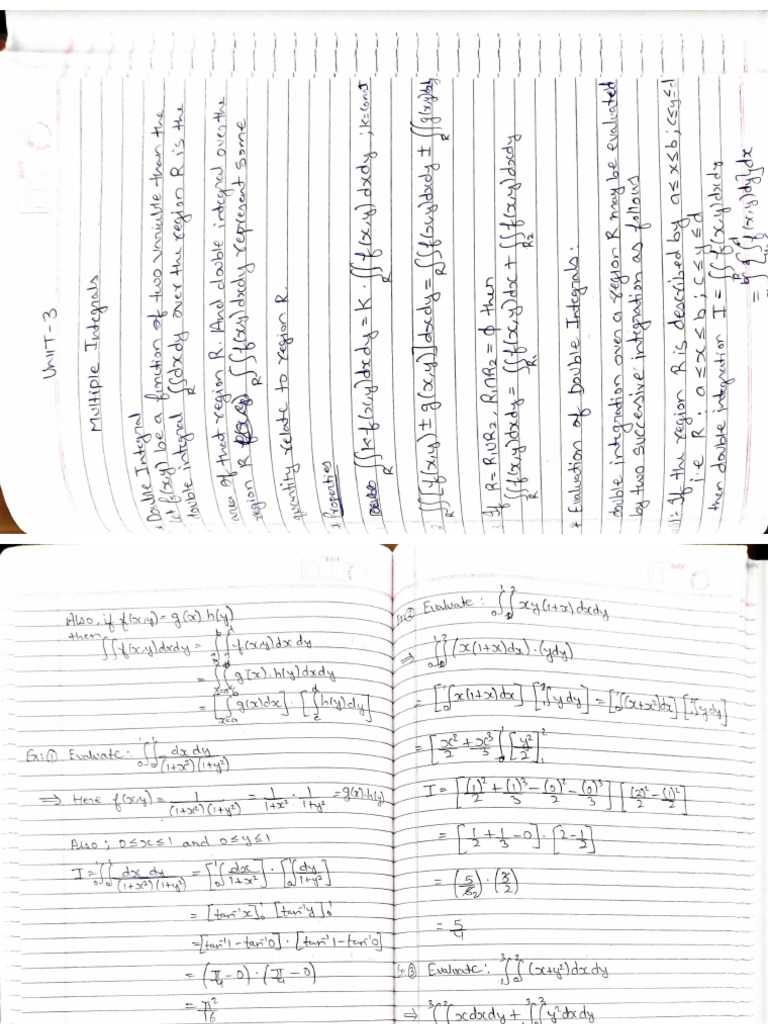 UNIT-3
Multiple Integrals
* Double Integral
let f(x,y) be a function of two variable than the
double integral ∬_R dxdy over the region R is the
area of that region R. And double integral over the
region R ∬_R f(x,y) dxdy represent some
quantity relate to region R.
* Properties
∬_R k f(x,y) dxdy = k · ∬_R f(x,y) dxdy ; k=const
∬_R [f(x,y) ± g(x,y)] dxdy = ∬_R f(x,y) dxdy ± ∬_R g(x,y) dxdy
If R = R₁∪R₂, R₁∩R₂ = ϕ then
∬ f(x,y) dxdy = ∬_R₁ f(x,y) dx + ∬_R₂ f(x,y) dxdy
* Evaluation of Double Integrals.
double integration over a region R may be evaluated
by two successive integration as follows
If the region R is described by a≤x≤b ; c≤y≤d
i.e R : a≤x≤b ; c≤y≤d
then double integration I = ∬_R f(x,y) dxdy
= ∫{∫ f(x,y) dy} dx
Also, if f(x,y) = g(x) · h(y)
then
∬ f(x,y) dxdy = ∫_{x=a}^b ∫_c^d f(x,y) dx dy
= ∫_{x=a}^b ∫_c^d g(x) · h(y) dxdy
= [∫_{x=a}^b g(x) dx] · [∫_c^d h(y) dy]
Ex:① Evaluate: ∫₀¹∫₀¹ dx dy / (1+x²)(1+y²)
⇒ Here f(x,y) = 1/(1+x²)(1+y²) = 1/1+x² · 1/1+y² = g(x)·h(y)
Also ; 0≤x≤1 and 0≤y≤1
I = ∫₀¹∫₀¹ dx dy / (1+x²)(1+y²) = [∫₀¹ dx/1+x²] · [∫₀¹ dy/1+y²]
= [tan⁻¹x]₀¹ [tan⁻¹y]₀¹
= [tan⁻¹1 − tan⁻¹0] · [tan⁻¹1 − tan⁻¹0]
= (π/4 − 0) · (π/4 − 0)
= π²/16
② Evaluate : ∫₀¹∫₁² xy(1+x) dxdy
⇒ ∫₀¹∫₁² (x(1+x)dx) · (ydy)
= [∫₀¹ x(1+x)dx] [∫₁² y dy] = [∫₀¹ (x+x²)dx] [∫₁² ydy]
= [x²/2 + x³/3]₀¹ [y²/2]₁²
I = [(1)²/2 + (1)³/3 − (0)²/2 − (0)³/3] [(2)²/2 − (1)²/2]
= [1/2 + 1/3 − 0] · [2 − 1/2]
= (5/6) · (3/2)
= 5/4
③ Evaluate : ∫₁³∫₀² (x+y²) dxdy
⇒ ∫₁³∫₀² x dxdy + ∫₁³∫₀² y² dxdy